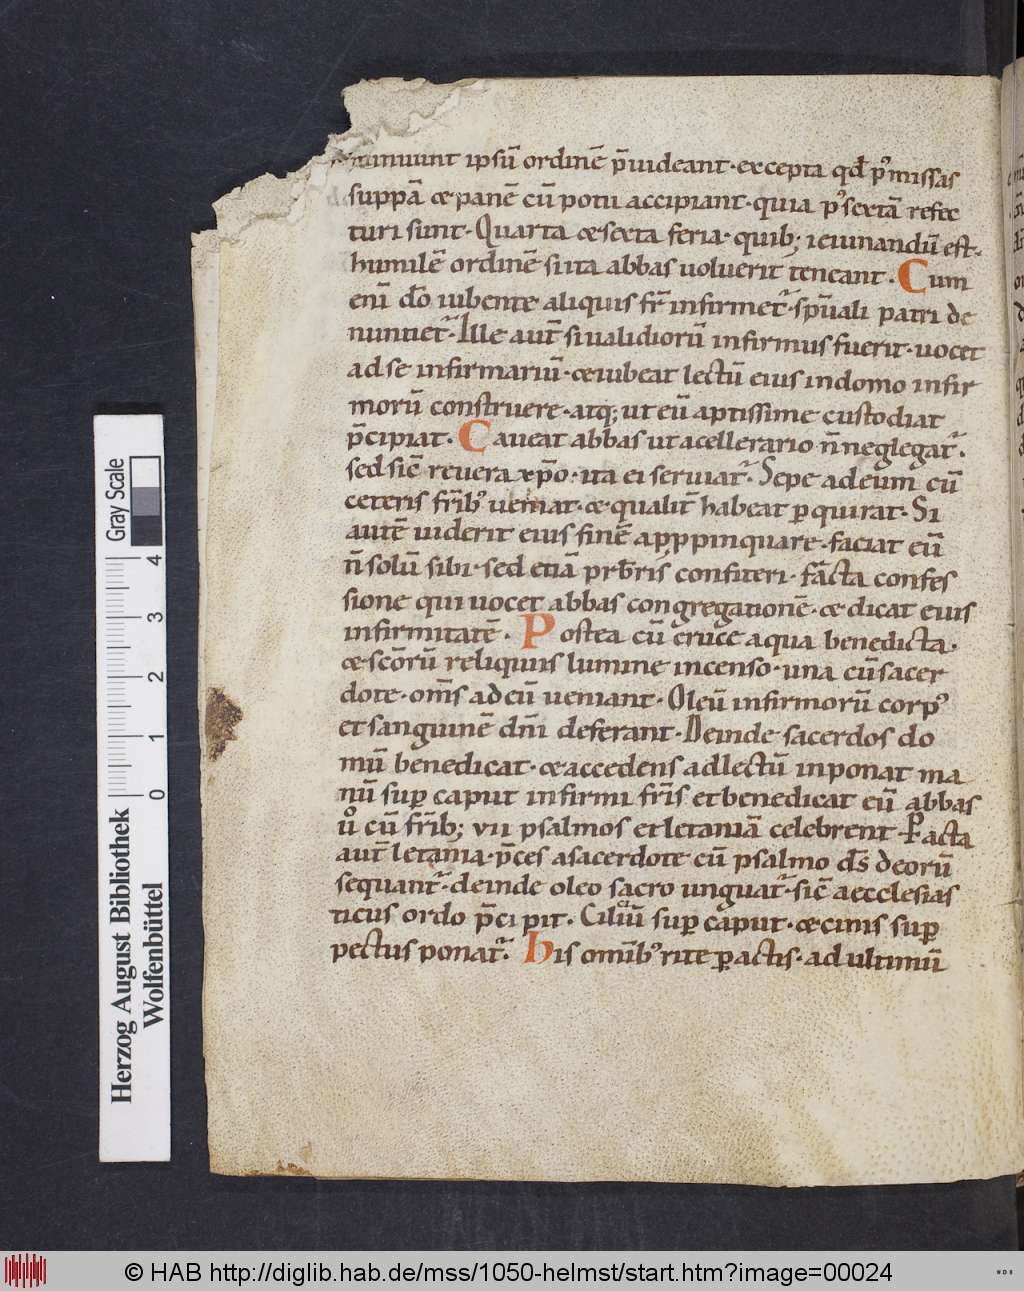 minuunt ipsū ordinē p̄uideant · excepta qđ p⁹ missas
suppā & panē cū potu accipiant · quia p⁹ sextā refec
turi sunt · Quarta & sexta feria · quib; ieiunandū est ·
humilē ordinē si ita abbas uoluerit teneant · Cum
enī dō iubente aliquis fr̄ infirmet᷑ · sp̄uali patri de
nuntiet᷑ · Ille aut̄ si ualidiorū infirmus fuerit · uocet
ad se infirmariū · & iubeat lectū eius in domo infir
morū construere · atq; ut eū aptissime custodiat
p̄cipiat · Caueat abbas ut a cellerario n̄ neglegat᷑ ·
sed sic̄ reuera xp̄o · ita ei seruiat᷑ · Sepe ad eum cū
ceteris fr̄ib⁹ ueniat · & qualit̄ habeat ꝑquirat · Si
autē uiderit eius finē appꝓpinquare · faciat eū
n̄ solū sibi · sed etiā prb̄ris confiteri · fācta confes
sione qui uocet abbas congregationē · & dicat eius
infirmitatē · Postea cū cruce aqua benedicta ·
& sc̄orū reliquiis lumine incenso · una cū sacer
dote · om̄s ad eū ueniant · Oleū infirmorū corp⁹
et sanguinē dn̄i deferant · Deinde sacerdos do
mū benedicat · & accedens ad lectū inponat ma
nū suꝑ caput infirmi fr̄is et benedicat eū abbas
uº cū fr̄ib; vii psalmos et letaniā celebrent · Facta
aut̄ letania · p̄ces a sacerdote cū psalmo d̄s deorū
sequant᷑ · deinde oleo sacro unguat᷑ · sic̄ aecclesias
ticus ordo p̄cipit · Ciliciū suꝑ caput · & cinis suꝑ
pectus ponat᷑ · His omīb⁹ rite ꝑactis · ad ultimū
Herzog August Bibliothek
Wolfenbüttel
0 1 2 3 4
Gray Scale
© HAB http://diglib.hab.de/mss/1050-helmst/start.htm?image=00024